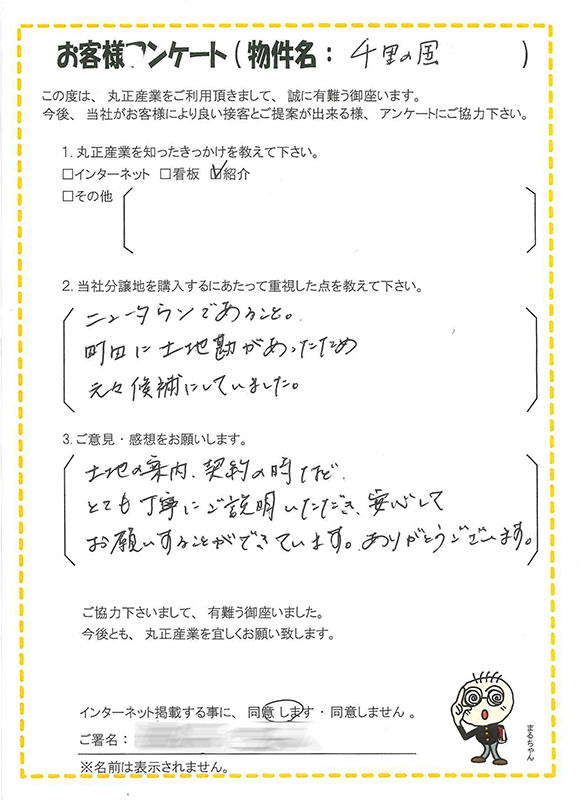 お客様アンケート（物件名：千里の風）
この度は、丸正産業をご利用頂きまして、誠に有難う御座います。
今後、当社がお客様により良い接客とご提案が出来る様、アンケートにご協力下さい。
1．丸正産業を知ったきっかけを教えて下さい。
□インターネット □看板 ☑紹介
□その他
2．当社分譲地を購入するにあたって重視した点を教えて下さい。
ニュータウンであること。
町田に土地勘があったため
元々候補にしていました。
3．ご意見・感想をお願いします。
土地の案内、契約の時など、
とても丁寧にご説明いただき、安心して
お願いすることができています。ありがとうございます。
ご協力下さいまして、有難う御座いました。
今後とも、丸正産業を宜しくお願い致します。
インターネット掲載する事に、同意します・同意しません。
ご署名：
※名前は表示されません。
まるちゃん